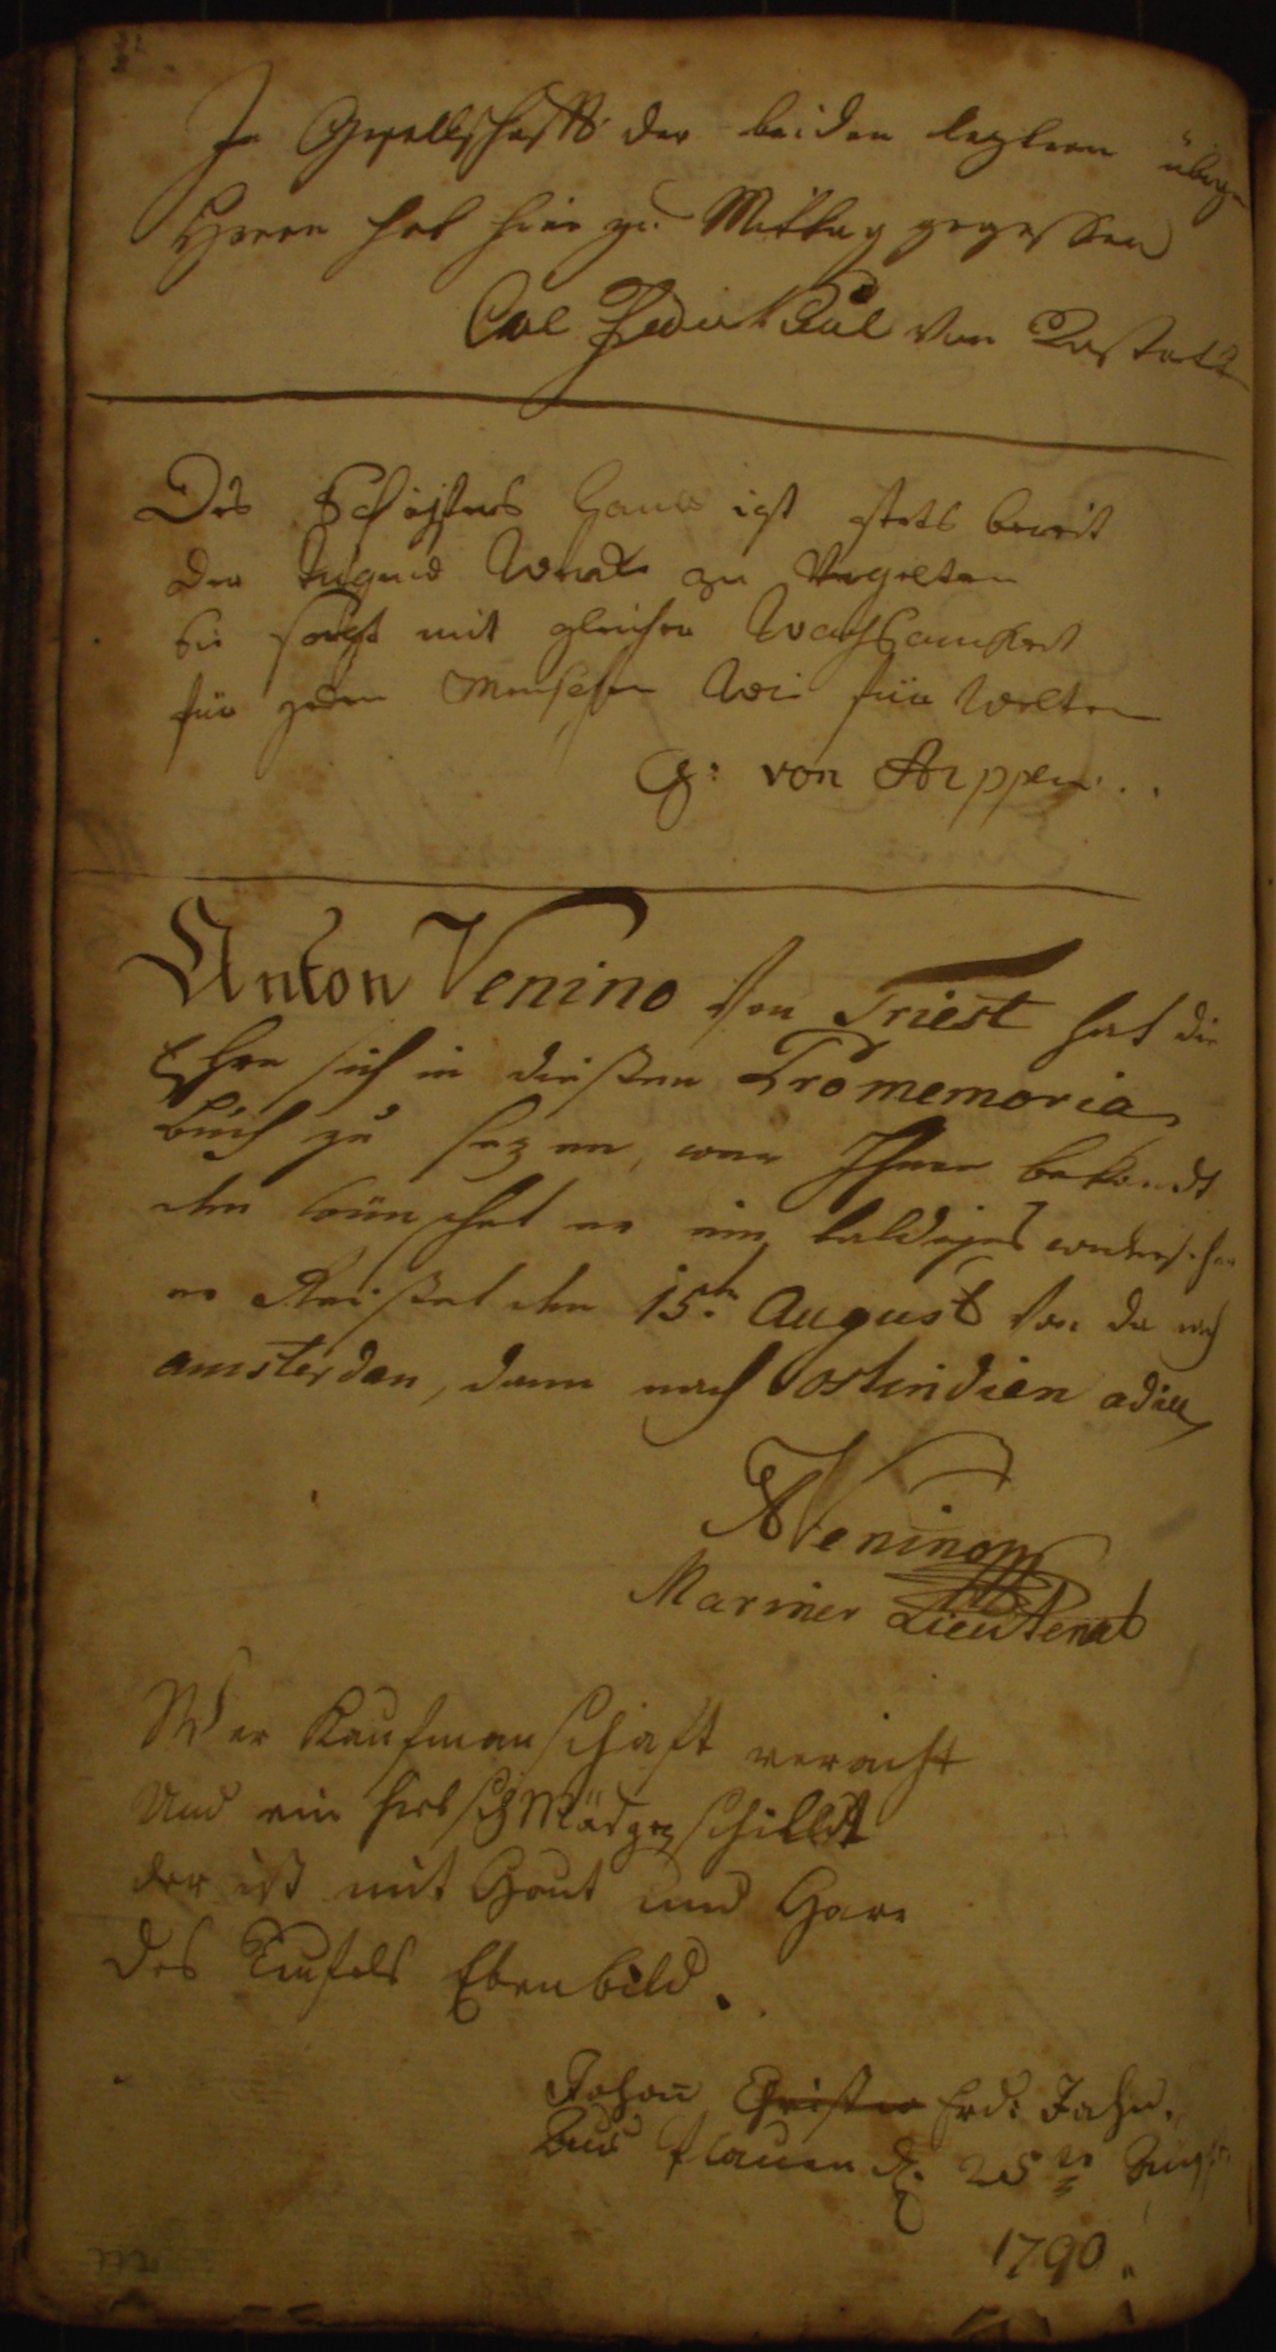 In Gesellschafft der beiden leztern
Herrn hat hier zu Mittag gegessen
Carl von Rastatt
Des Schöpfers Hand ist stets bereit
der Tugend Werth zu Vergelten
Sie sorgt mit gleicher Wachsamkeit
für jeden Menschen Wie für Welten
G: von
Anton Venino von Triest hat die
Ehre sich in dießen Promemoria
buch zu sezen, wer Ihme bekandt
den wünschet er ein baldiges wiedersehen
er Reißet den 15.ten August von da nach
amsterdan, dann nach ostindien
AVenino
Mariner Lieutenat
Wer Kaufmanschaft veracht
Und ein hibsch Mädgen schilldt
der ist mit Haut und Har
des Teufels Ebenbild.
Johan̄ Christia Frd: Jahn.
Aus Plauen d. 25 Aug
1790.